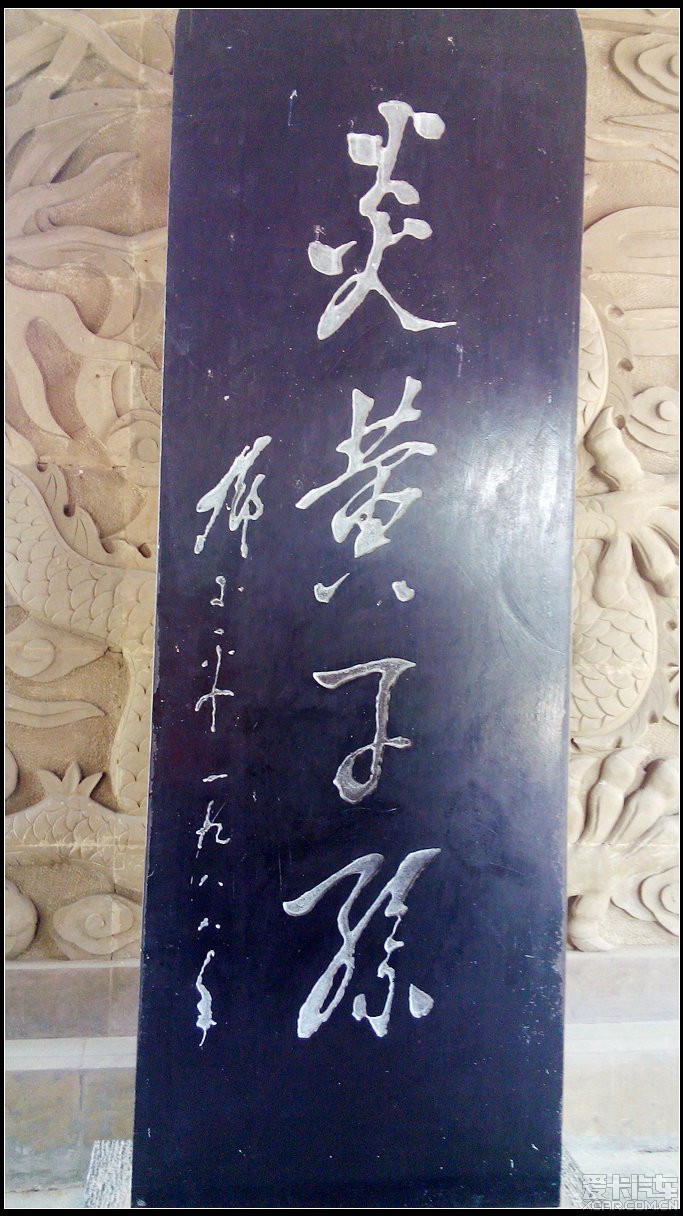 炎黄子孫
邓小平 一九八八年
爱卡汽车
XCAR.COM.CN